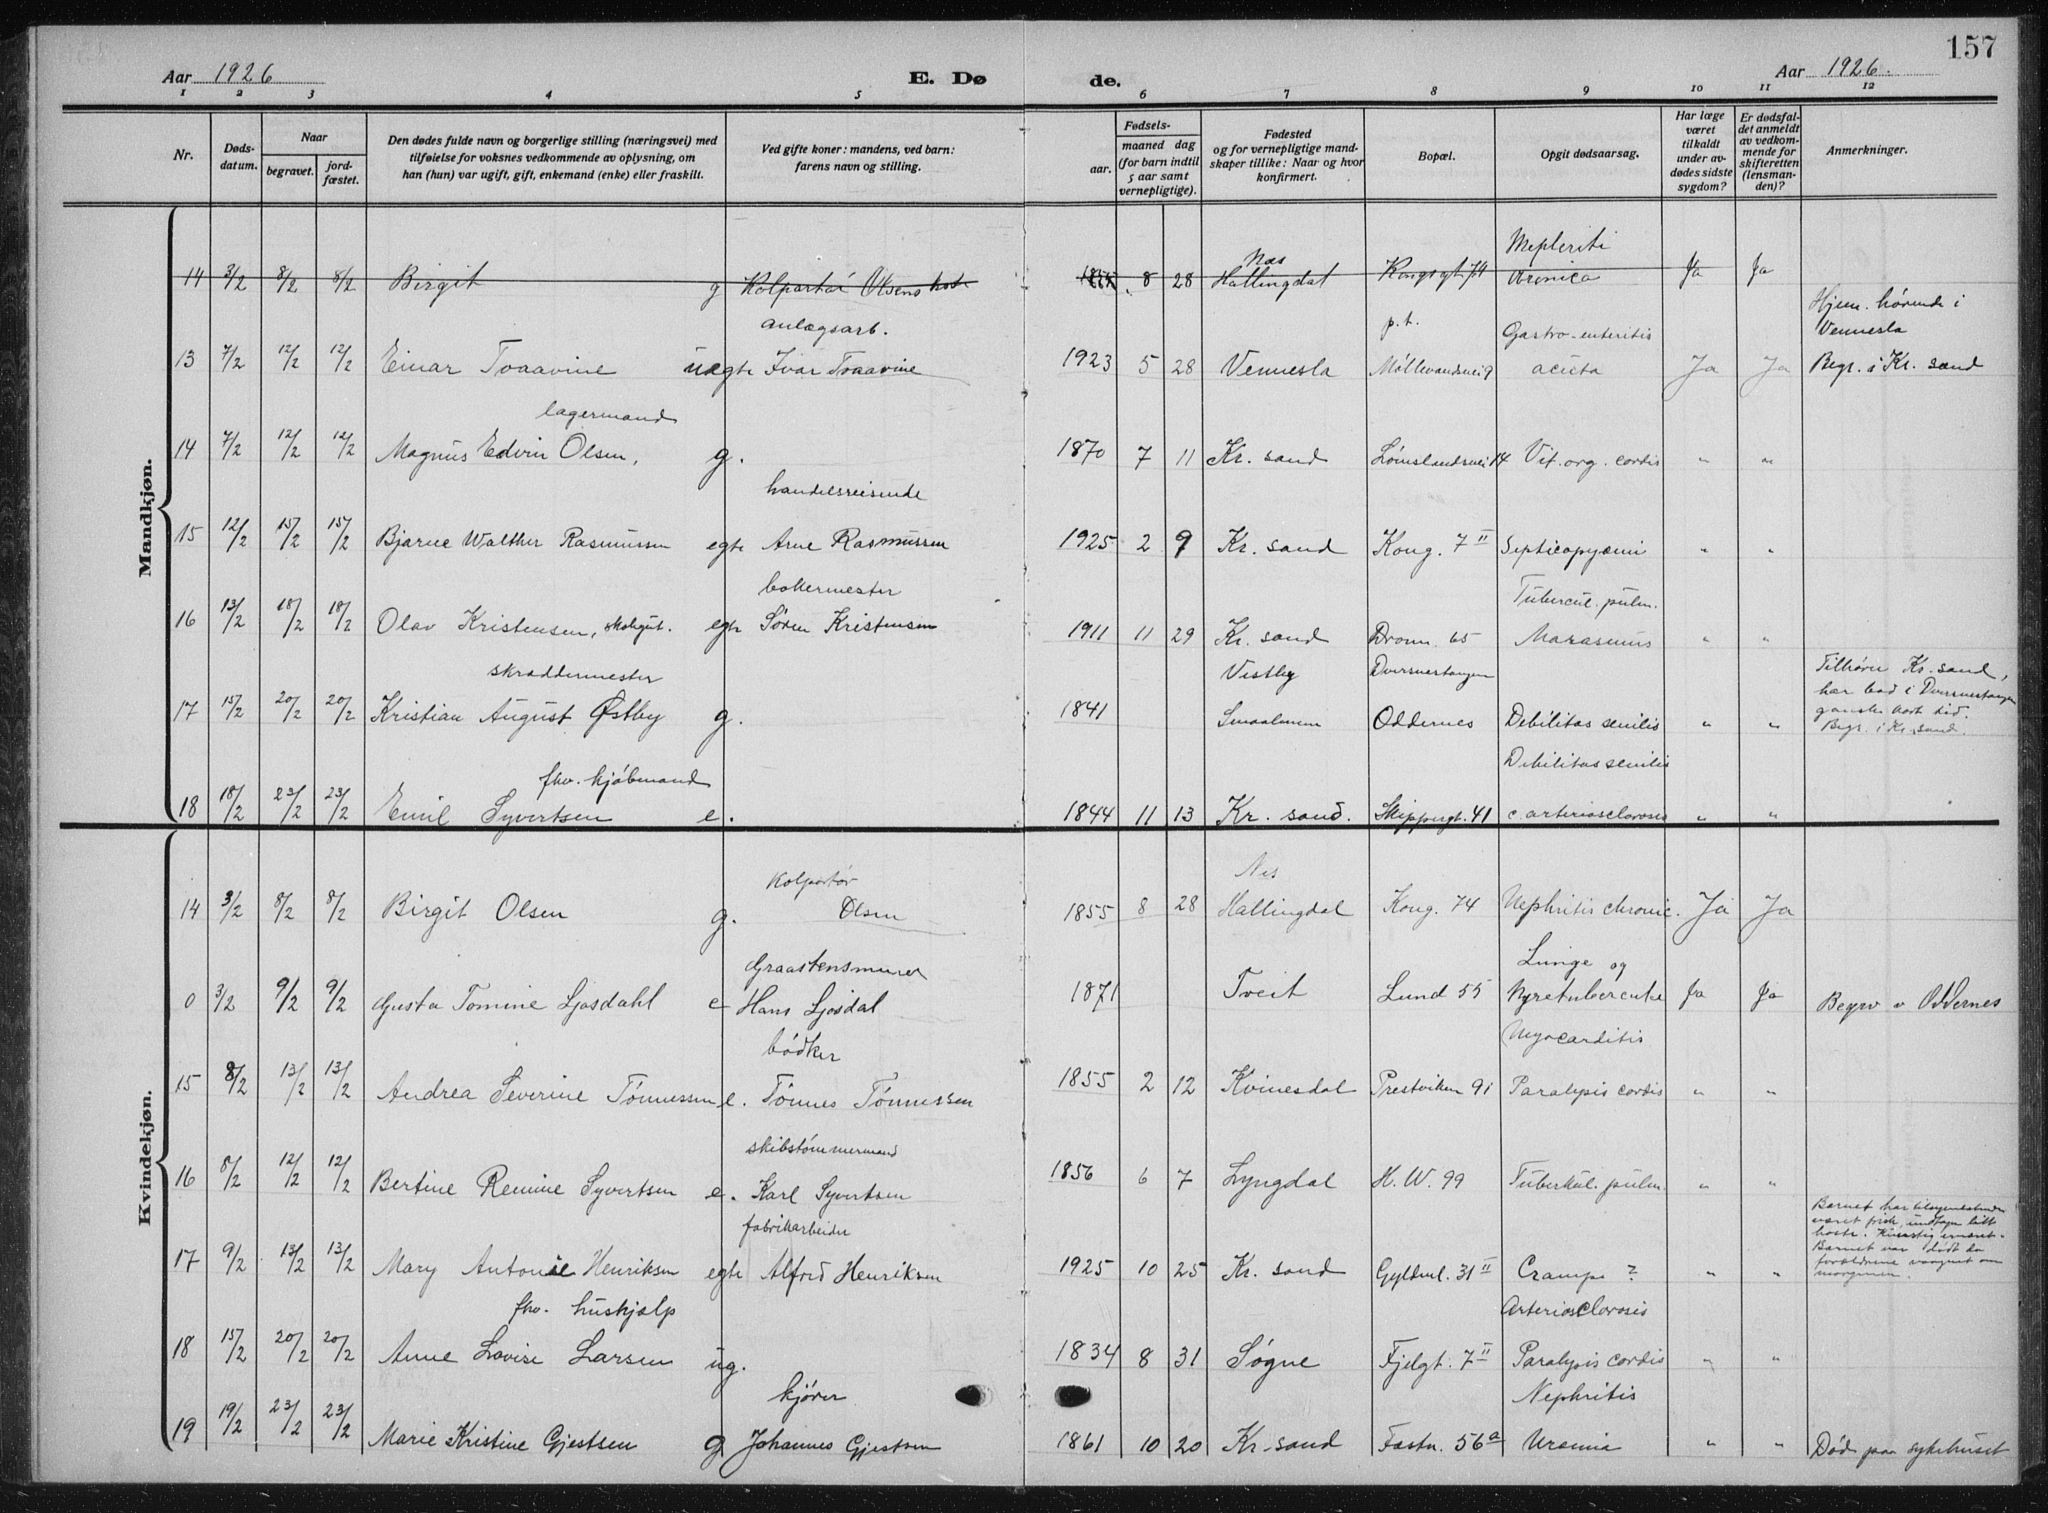 157
Aar 1926
E. Døde.
Aar 1926.
1 2 3 4 5 6 7 8 9 10 11 12
Nr.
Døds-
datum.
Naar
begravet.
jord-
fæstet.
Den dødes fulde navn og borgerlige stilling (næringsvei) med
tilføielse for voksnes vedkommende av oplysning, om
han (hun) var ugift, gift, enkemand (enke) eller fraskilt.
Ved gifte koner: mandens, ved barn:
farens navn og stilling.
Fødsels-
aar.
maaned dag
(for barn indtil
5 aar samt
vernepligtige).
Fødested
og for vernepligtige mand-
skaper tillike: Naar og hvor
konfirmert.
Bopæl.
Opgit dødsaarsag.
Har læge
været
tilkaldt
under av-
dødes sidste
sygdom?
Er dødsfal-
det anmeldt
av vedkom-
mende for
skifteretten
(lensman-
den)?
Anmerkninger.
Mandkjøn.
Næs
14 3/2 8/2 8/2 Birgit g Kolportør Olsens 8 28 Hallingdal Kongsgt 74 Ja Ja
anlægsarb. p.t. Gastro-enteritis Hjem.hørende i
Vennesla
13 7/2 12/2 12/2 Einar Toaavine uægte Ivar Toaavine 1923 5 28 Vennesla Møllevandsvei 9 acuta Ja Ja Begr. i Kr. sand
lagermand
14 7/2 12/2 12/2 Magnus Edvin Olsen, g. 1870 7 11 Kr. sand Lømslandsvei 14 Vit. org. cordis " "
handelsreisende
15 12/2 15/2 15/2 Bjarne Walther Rasmussen egte Arne Rasmussen 1925 2 9 Kr. sand Kong. 7 II Septicopyæmi " "
bakermester Tubercul. pulm.
16 13/2 18/2 18/2 Olav Kristensen, egte Søren Kristensen 1911 11 29 Kr. sand Dronn. 65 Marasmus " "
skræddermester Vestby Dversnestangen Tilhører Kr. sand,
har bod i Dversnestangen
17 15/2 20/2 20/2 Kristian August Østby g. 1841 Smaalenene Oddernes Debilitas senilis " " ganske kort tid.
Begr. i Kr. sand.
fhv. kjøbmand Debilitas senilis
18 18/2 23/2 23/2 Emil Syvertsen e. 1844 11 13 Kr. sand. Skippergt. 41 c. arteriosclorosis " "
Kvindekjøn.
Kolportør Nes
14 3/2 8/2 8/2 Birgit Olsen g. Olsen 1855 8 28 Hallingdal Kong. 74 Nephritis chronic. Ja Ja
Lunge og
0 3/2 9/2 9/2 Gusta Tomine Ljosdahl e Hans Ljosdal 1871 Tveit Lund 55 Nyretuberculose Ja Ja Begrv v Oddernes
bødker Myocarditis
15 8/2 13/2 13/2 Andrea Severine Tønnessen e. Tønnes Tønnessen 1855 2 12 Kvinesdal Prestviken 91 Paralysis cordis " "
skibstømmermand
16 8/2 12/2 12/2 Bertine Remine Syvertsen e. Karl Syvertsen 1856 6 7 Lyngdal H. W. 99 Tuberkul. pulm. " "
fabrikarbeider Barnet har tilsynelatende
været frisk, undtagen litt
hoste. Kunstig ernæret.
17 9/2 13/2 13/2 Mary Antonie Henriksen egte Alfred Henriksen 1925 10 25 Kr. sand Gyldenl. 31 II Crampe ? " " Barnet var dødt da
forældrene vaagnet om
morgenen.
fhv. huskjælp Arteriosclorosis
18 15/2 20/2 20/2 Anne Lovise Larsen ug. 1834 8 31 Søgne Fjelgt. 7 II Paralysis cordis " "
kjører Nephritis
19 19/2 23/2 23/2 Marie Kristine Gjestsen g Johannes Gjestsen 1861 10 20 Kr. sand Fæstn. 56 a Uremia " " Død paa sykehuset